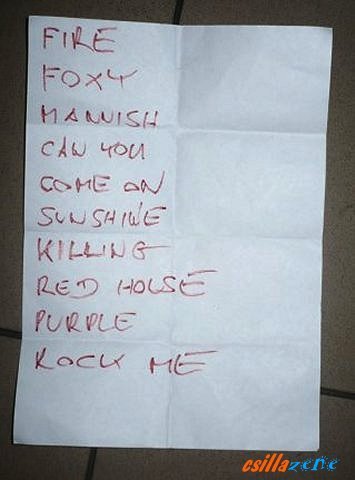 FIRE
FOXY
MANNISH
CAN YOU
COME ON
SUNSHINE
KILLING
RED HOUSE
PURPLE
ROCK ME
csillazene